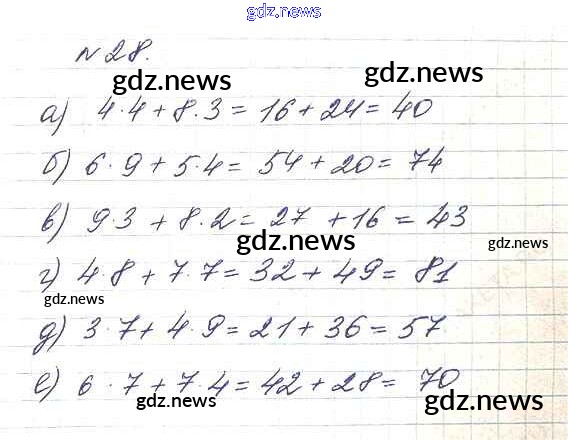 gdz.news
№28.
gdz.news
gdz.news
а) 4·4+8·3=16+24=40
б) 6·9+5·4=54+20=74
в) 9·3+8·2=27+16=43
gdz.news
gdz.news
г) 4·8+7·7=32+49=81
gdz.news
д) 3·7+4·9=21+36=57
е) 6·7+7·4=42+28=70
gdz.news
gdz.news